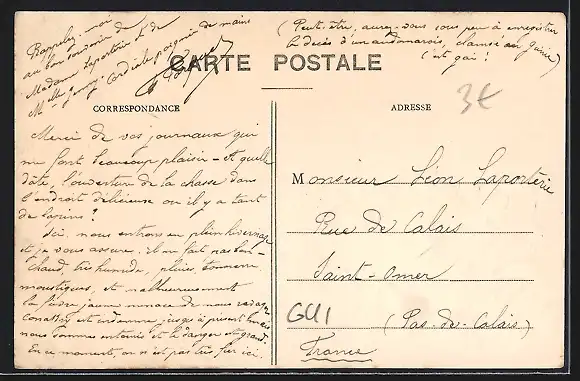 Rappelez-moi
au bon souvenir de
Madame Laporterie et de
Melle cordiale poignée de mains
(Peut-être, aurez-vous sous peu à enregistrer
le décès d'un audomarois, clamsé en Guinée)
c'est gai !
CARTE POSTALE
3€
CORRESPONDANCE
ADRESSE
Merci de vos journaux qui
me font beaucoup plaisir - A quelle
date, l'ouverture de la chasse dans
l'endroit délicieux où il y a tant
de lapins ?
Ici, nous entrons en plein hivernage
et je vous assure, il ne fait pas bon -
Chaud, très humide, pluies, tonnerre
moustiques, et malheureusement
la fièvre jaune menace de nous
Conakry est jusqu'à présent
nous sommes entourés et le danger est grand.
En ce moment, on n'est pas très fier ici.
Monsieur Léon Laporterie
Rue de Calais
Saint-Omer
GUI
(Pas-de-Calais)
France